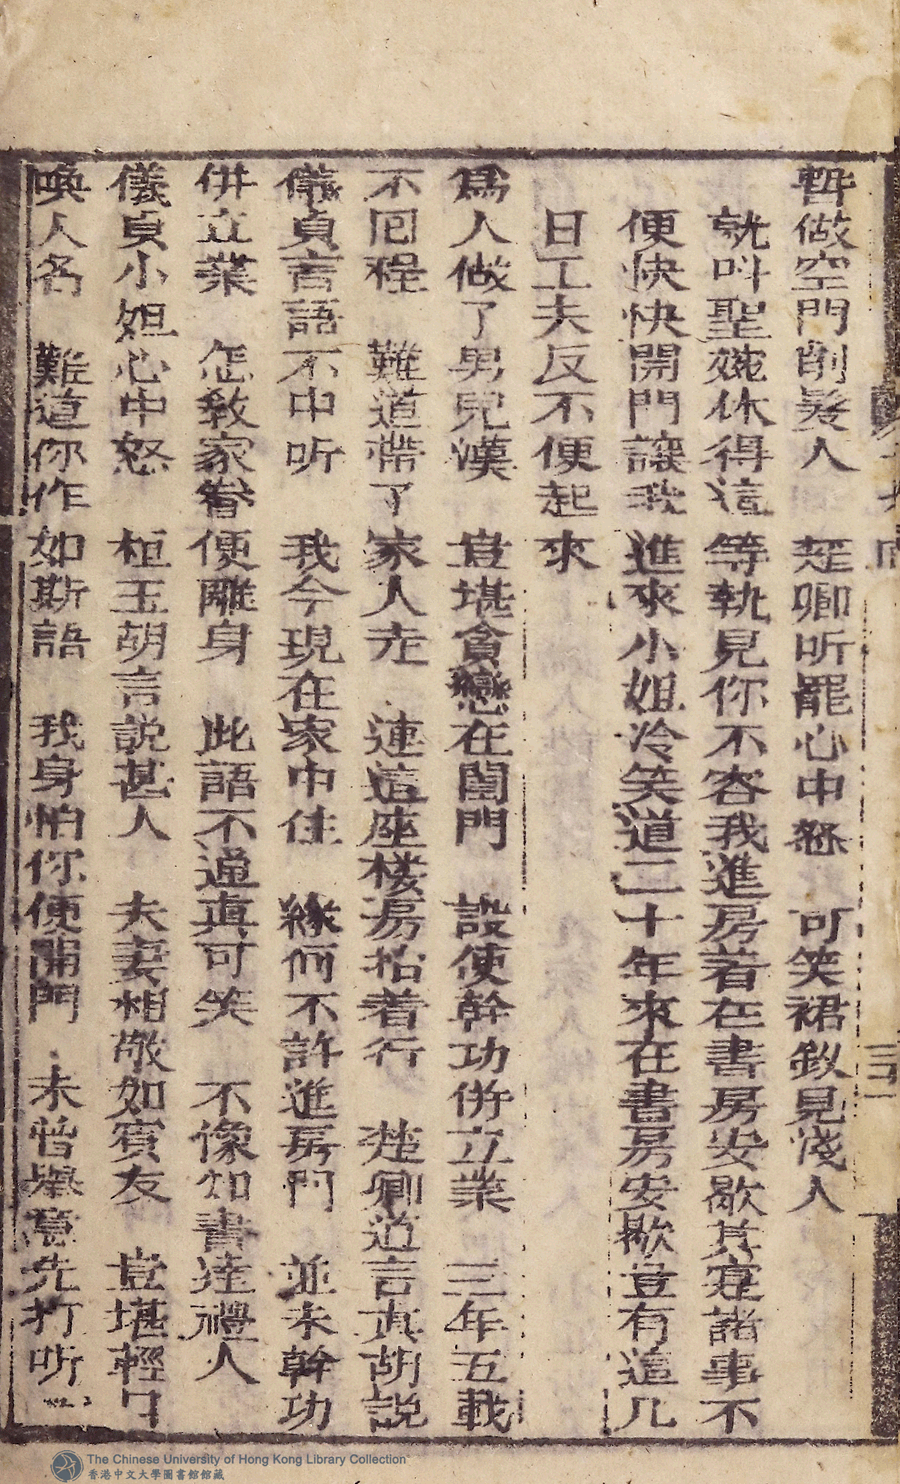 暫做空門削髮人　楚卿听罷心中怒　可笑裙釵見淺人
就叫聖婉休得這等執見你不容我進房着在書房安歇其寔諸事不
便快快開門讓我進來小姐冷笑道二十年來在書房安歇豈有這几
日工夫反不便起來
為人做了男兒漢　豈堪貪戀在閨門　設使幹功併立業　三年五載
不囘程　難道帶了家人走　連這座楼房抬着行　楚卿道言真胡説
儀貞言語不中听　我今現在家中住　緣何不許進房門　並未幹功
併立業　怎教家眷便離身　此語不通真可笑　不像知書達禮人
儀貞小姐心中怒　桓玉胡言説甚人　夫妻相敬如賓友　豈堪輕口
喚人名　難道你作如斯語　我身怕你便開門　未曾舉意先打听
The Chinese University of Hong Kong Library Collection
香港中文大學圖書館館藏